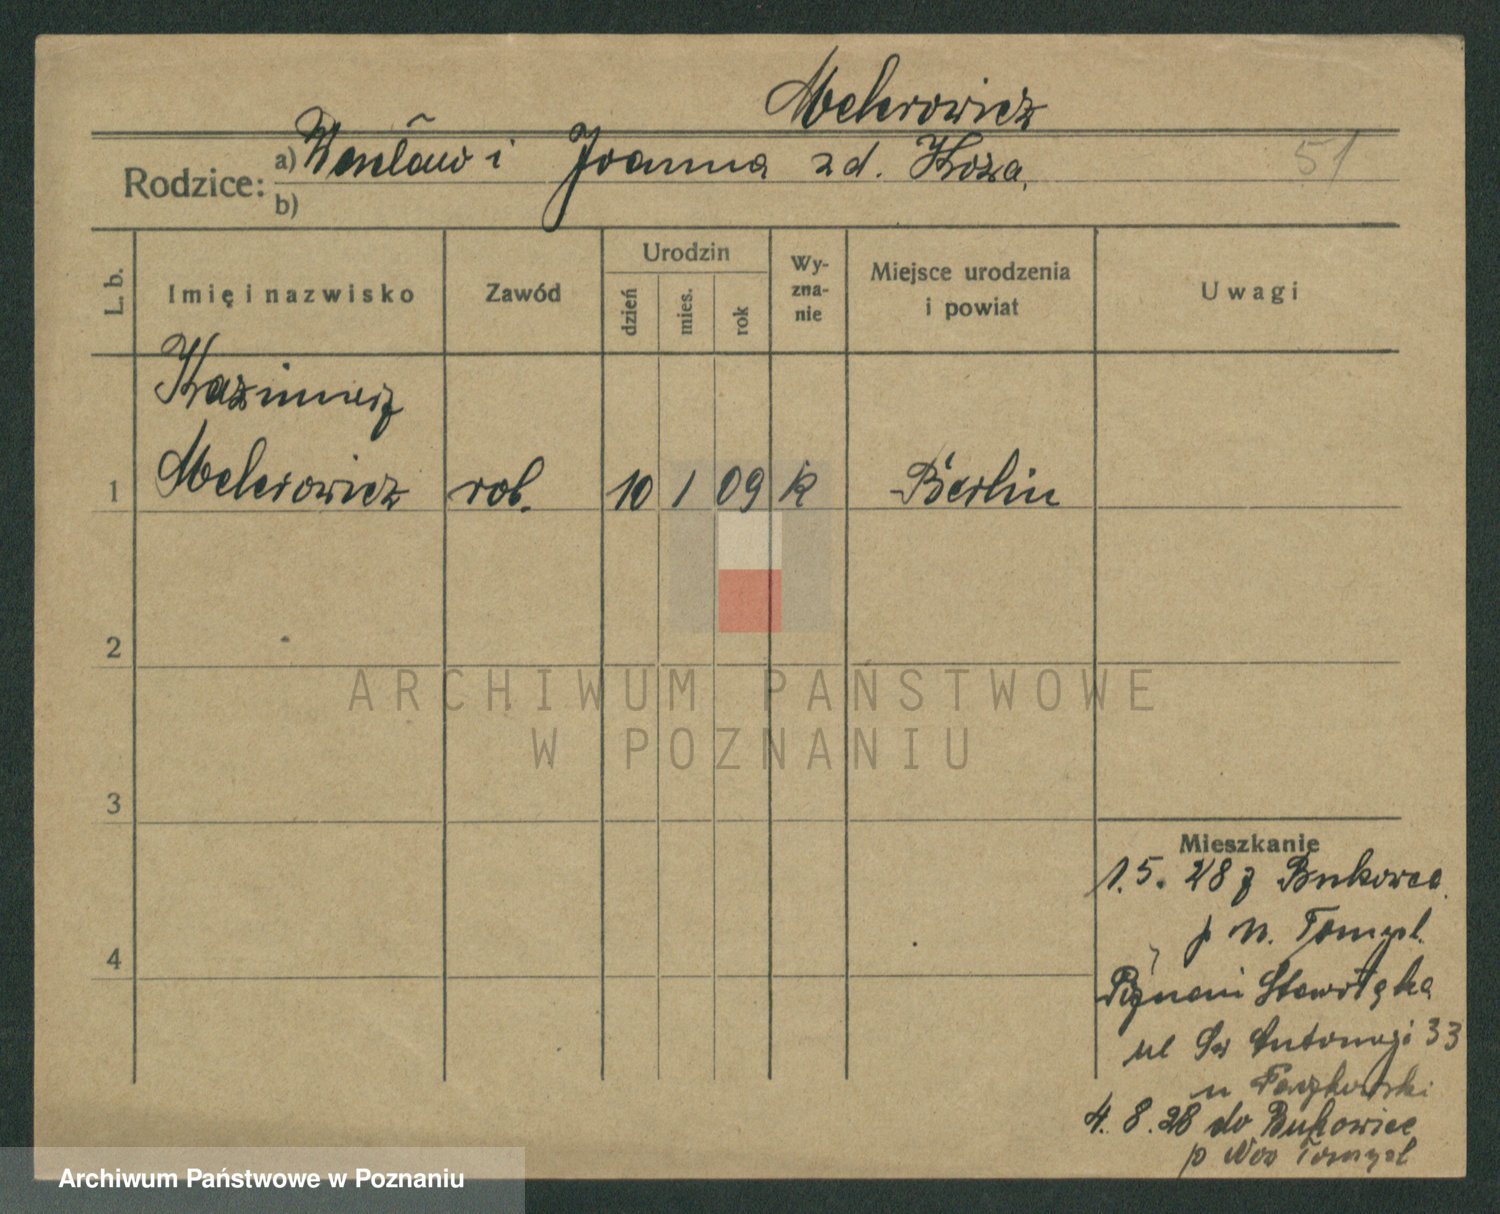 Melerowicz
Rodzice: a) Wacław i Joanna z d. Koza. 51
b)
L. b. Imię i nazwisko Zawód Urodzin dzień mies. rok Wy-zna-nie Miejsce urodzenia i powiat Uwagi
Kazimierz
1 Melerowicz rob. 10 1 09 k Berlin
2
ARCHIWUM PAŃSTWOWE
W POZNANIU
3
Mieszkanie
1.5.28 z Bukowca
p N. Tomyśl.
4
Poznań Starołęka
ul Św Antoniego 33
u
4.8.28 do Bukowiec
p Now Tomyśl
Archiwum Państwowe w Poznaniu